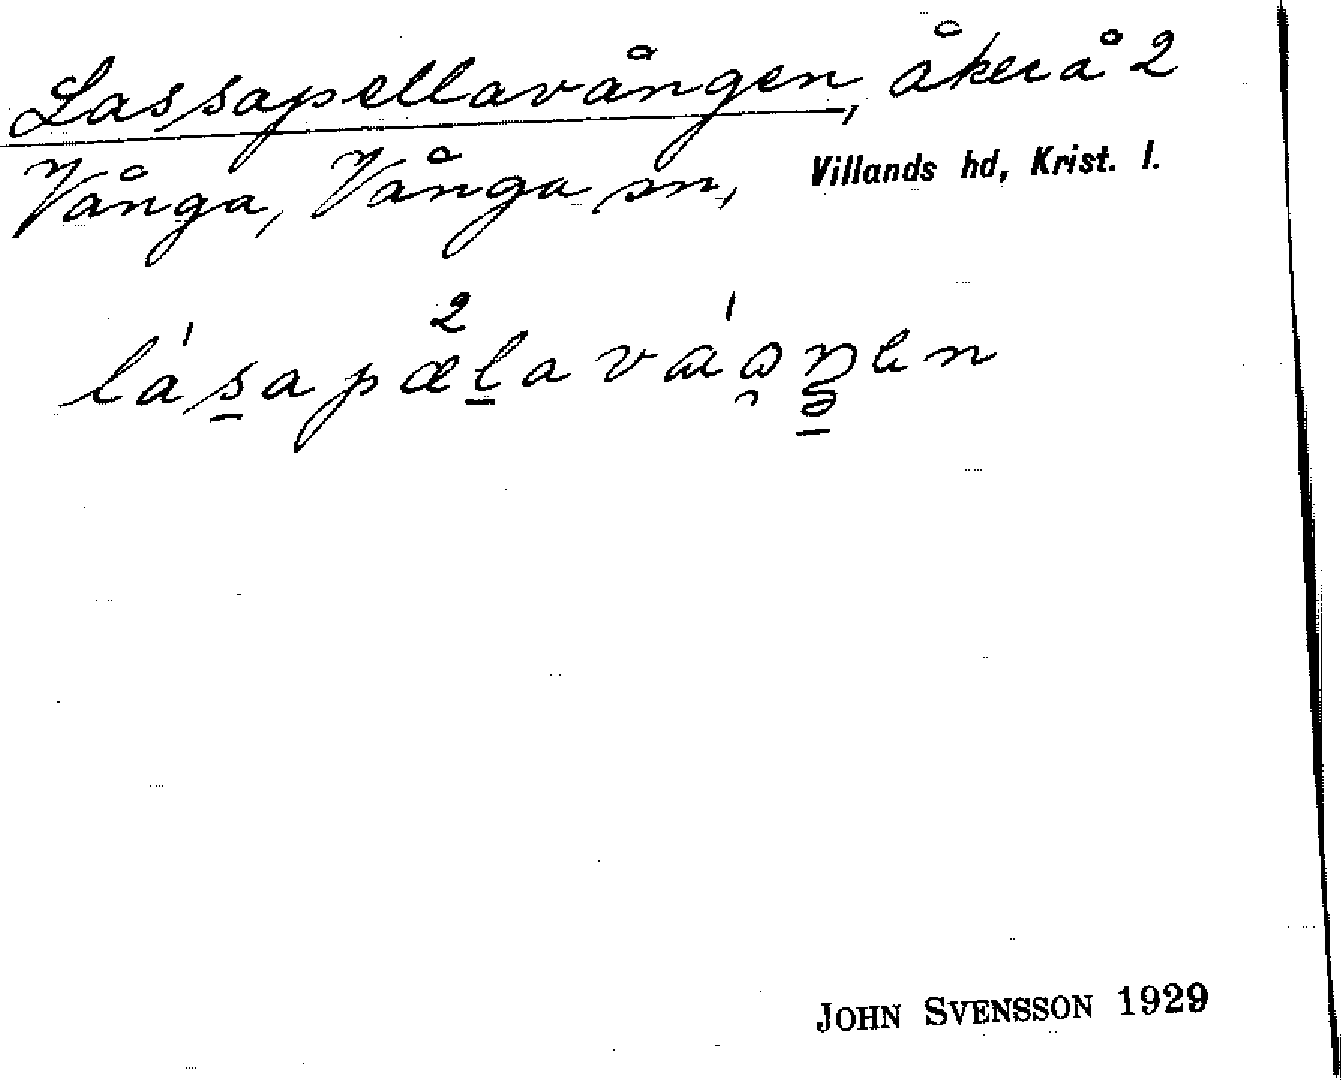 Lassapellavången, åker å 2
Vånga, Vånga sn, Villands hd, Krist. l.
JOHN SVENSSON 1929